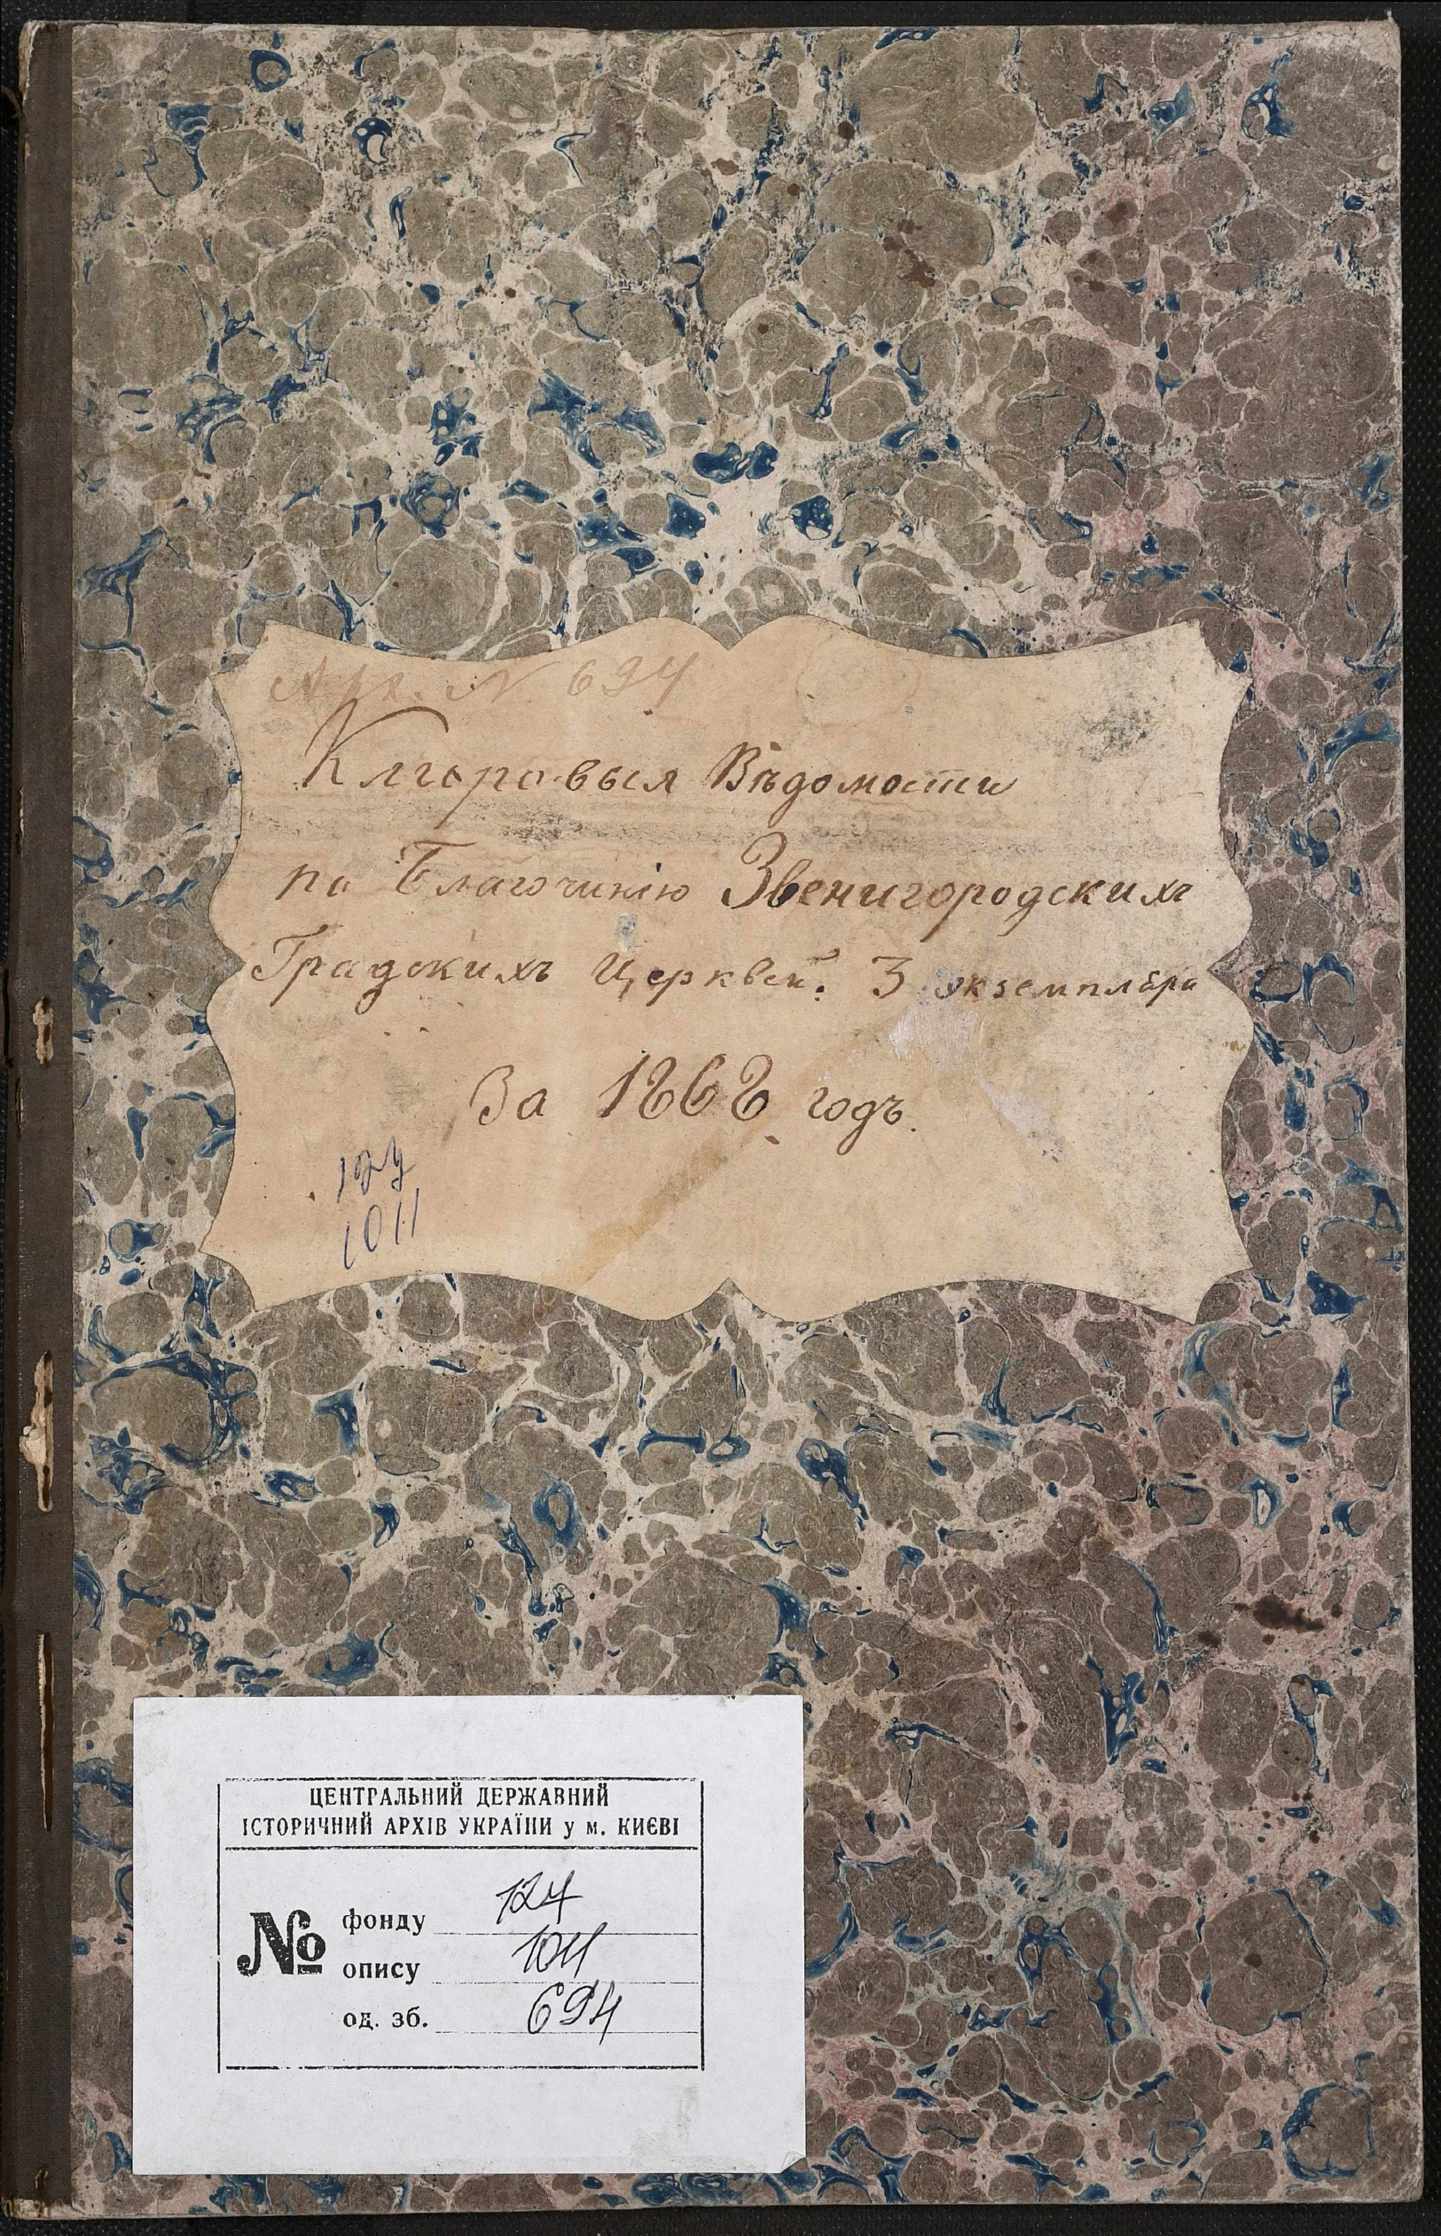 Арх. № 694
Клировыя Вѣдомости
по Благочинію Звенигородскихъ
Градскихъ Церквей. 3 экземпляра
За 1868 годъ.
127
1011
ЦЕНТРАЛЬНИЙ ДЕРЖАВНИЙ
ІСТОРИЧНИЙ АРХІВ УКРАЇНИ у м. КИЄВІ
№ фонду 127
опису 1011
од. зб. 694